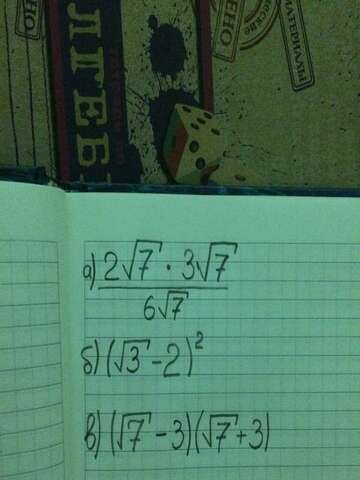 ЛГЕБ
МАТЕРИАЛЫ
а) 2√7 · 3√7 / 6√7
б) (√3 - 2)²
в) (√7 - 3)(√7 + 3)